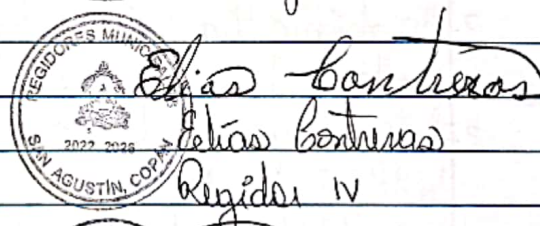 REGIDORES MUNICIPALES
2022 2026
SAN AGUSTÍN, COPAN
Elias Contreras
Elías Contreras
Regidor IV